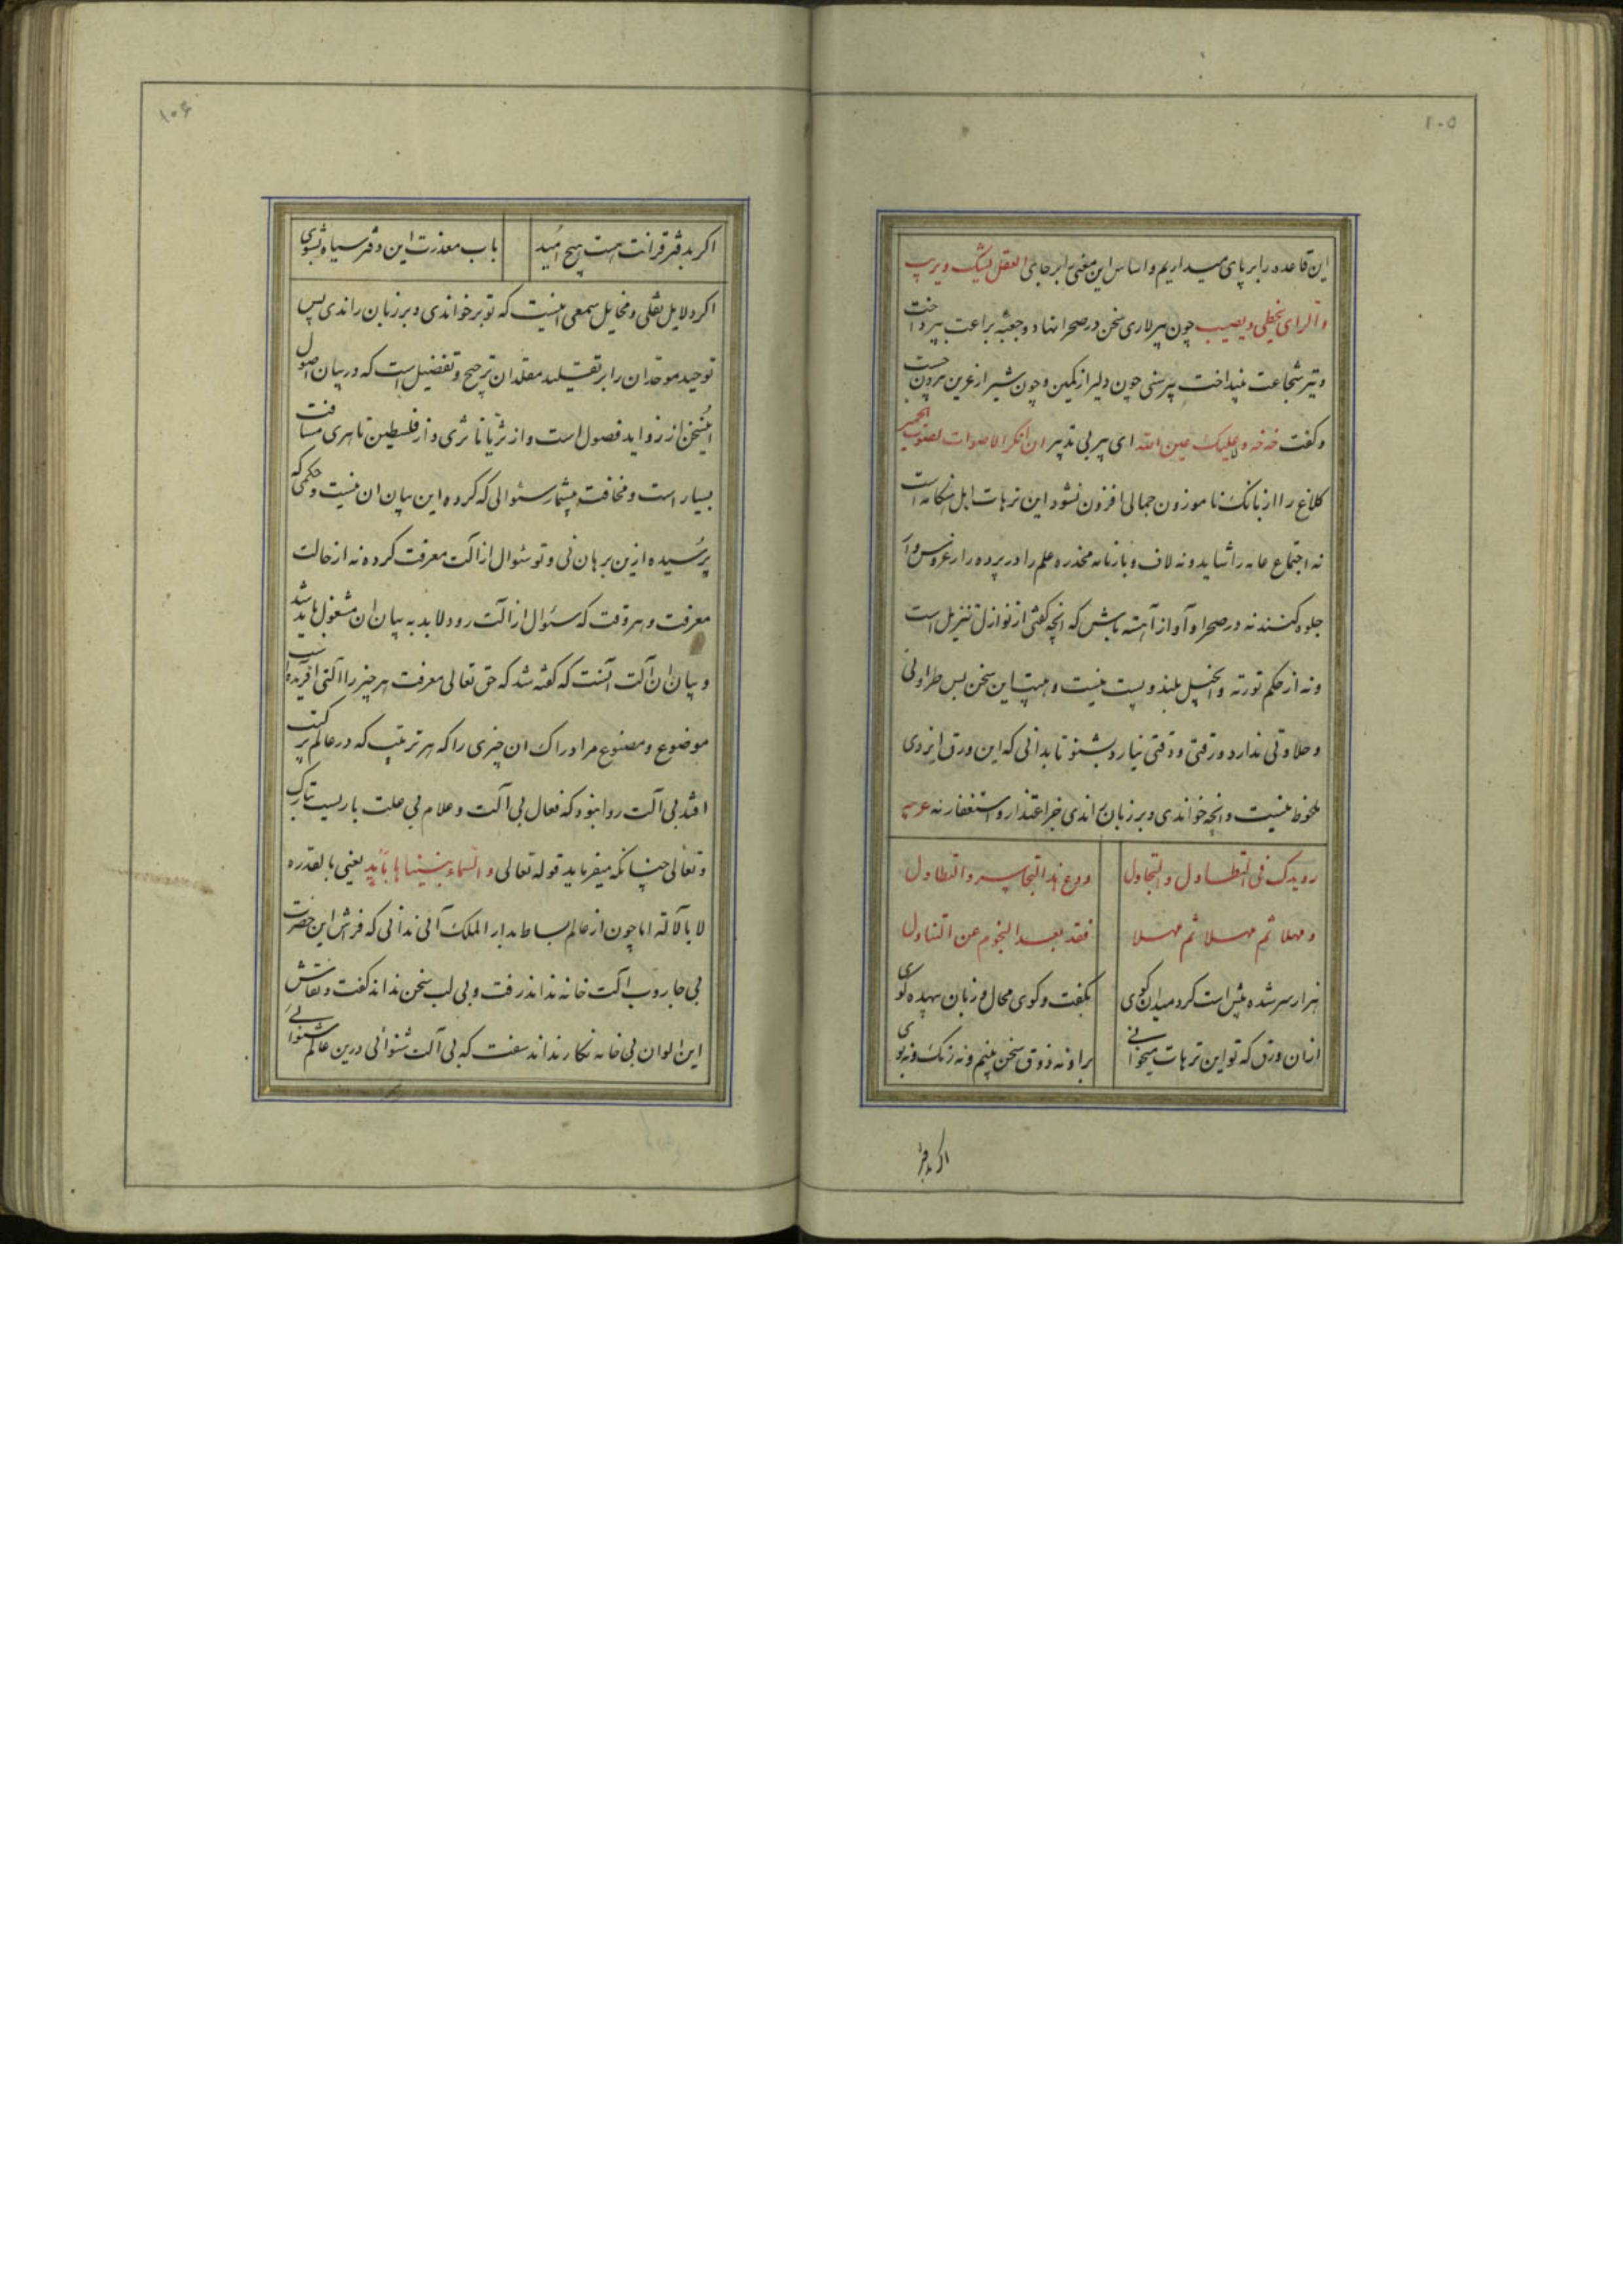 ۱۰۵
این قاعده را بر پای میداریم و اساس این معنی بر جای العقل یشک ویریب
والرای یخطی ویصیب چون پیر لاری سخن در صحرا نهاد و جعبه براعت بپرداخت
و تیر شجاعت بینداخت پیر سنی چون دلیر از کمین و چون شیر از عرین بیرون جست
و کفت خه خه و علیک عین الله ای پیر بی تدبیر ان انکر الاصوات لصوت الحمیر
کلاغ را از بانک ناموزون جمالی افزون نشود این ترهات اهل هنکامه است
نه اجتماع عامه را شاید و نه لاف و بارنامه مخدره علم را در پرده راز عروس وار
جلوه کنند نه در صحرا و آواز آهسته باش که انچه کفتی از نوازل تنزیل است
و نه از حکم توریة و انجیل بلند و پست نیست و هیبت این سخن بس طراوتی
و حلاوتی ندارد و رقتی و دقتی نیارد بشنو تا بدانی که این ورق ایزدی
ملحوظ نیست و انچه خواندی و بر زبان راندی جز اعتذار و استغفار نه عربیه
رویدک فی التطاول والتجاول ودع هذا التجاسر والتطاول
و مهلا ثم مهلا ثم مهلا فقد بعد النجوم عن التناول
هزار سر شده بیش است کرد میدان کوی بکفت و کوی محال و زبان بیهده کوی
ازان ورق که تو این ترهات میخوانی برا و نه ذوق سخن بینم و نه رنک و نه بوی
اکر بدفتر
۱۰۶
اکر بدفتر قرانت هست هیچ امید باب معذرت این دفتر سیاه بشوی
اکر دلایل نقلی و مخایل سمعی اینست که تو بر خواندی و بر زبان راندی پس
توحید موحدان را بر تقلید مقلدان ترجیح و تفضیل است که در بیان اصول
اینسخن از زواید فصول است و از ثریا تا ثری و از فلسطین تا هری مسافت
بسیار است و مخافت بیشمار سئوالی که کرده این بیان ان نیست و حکمی که
پرسیده ازین برهان نی و تو سئوال از آلت معرفت کرده نه از حالت
معرفت و هر وقت که سئوال از آلت رود لابد به بیان ان مشغول باید شد
و بیان ان آلت آنست که کفته شد که حق تعالی معرفت هر چیز را آلتی افریده است
موضوع و مصنوع مر ادراک ان چیزی را که هر ترتیب که در عالم ترکیب
افتد بی آلت روا نبود که فعال بی آلت و علام بی علت باریست تبارک
و تعالی چنانکه میفرماید قوله تعالی والسماء بنیناها باید یعنی بالقدرة
لا بالآلة اما چون از عالم بساط بدار الملک آئی ندانی که فراش این حضرت
بی جاروب آلت خانه نداند رفت و بی لب سخن نداند کفت و نقاش
این الوان بی خامه نکار نداند سفت که بی آلت شنوائی درین عالم شنوائی